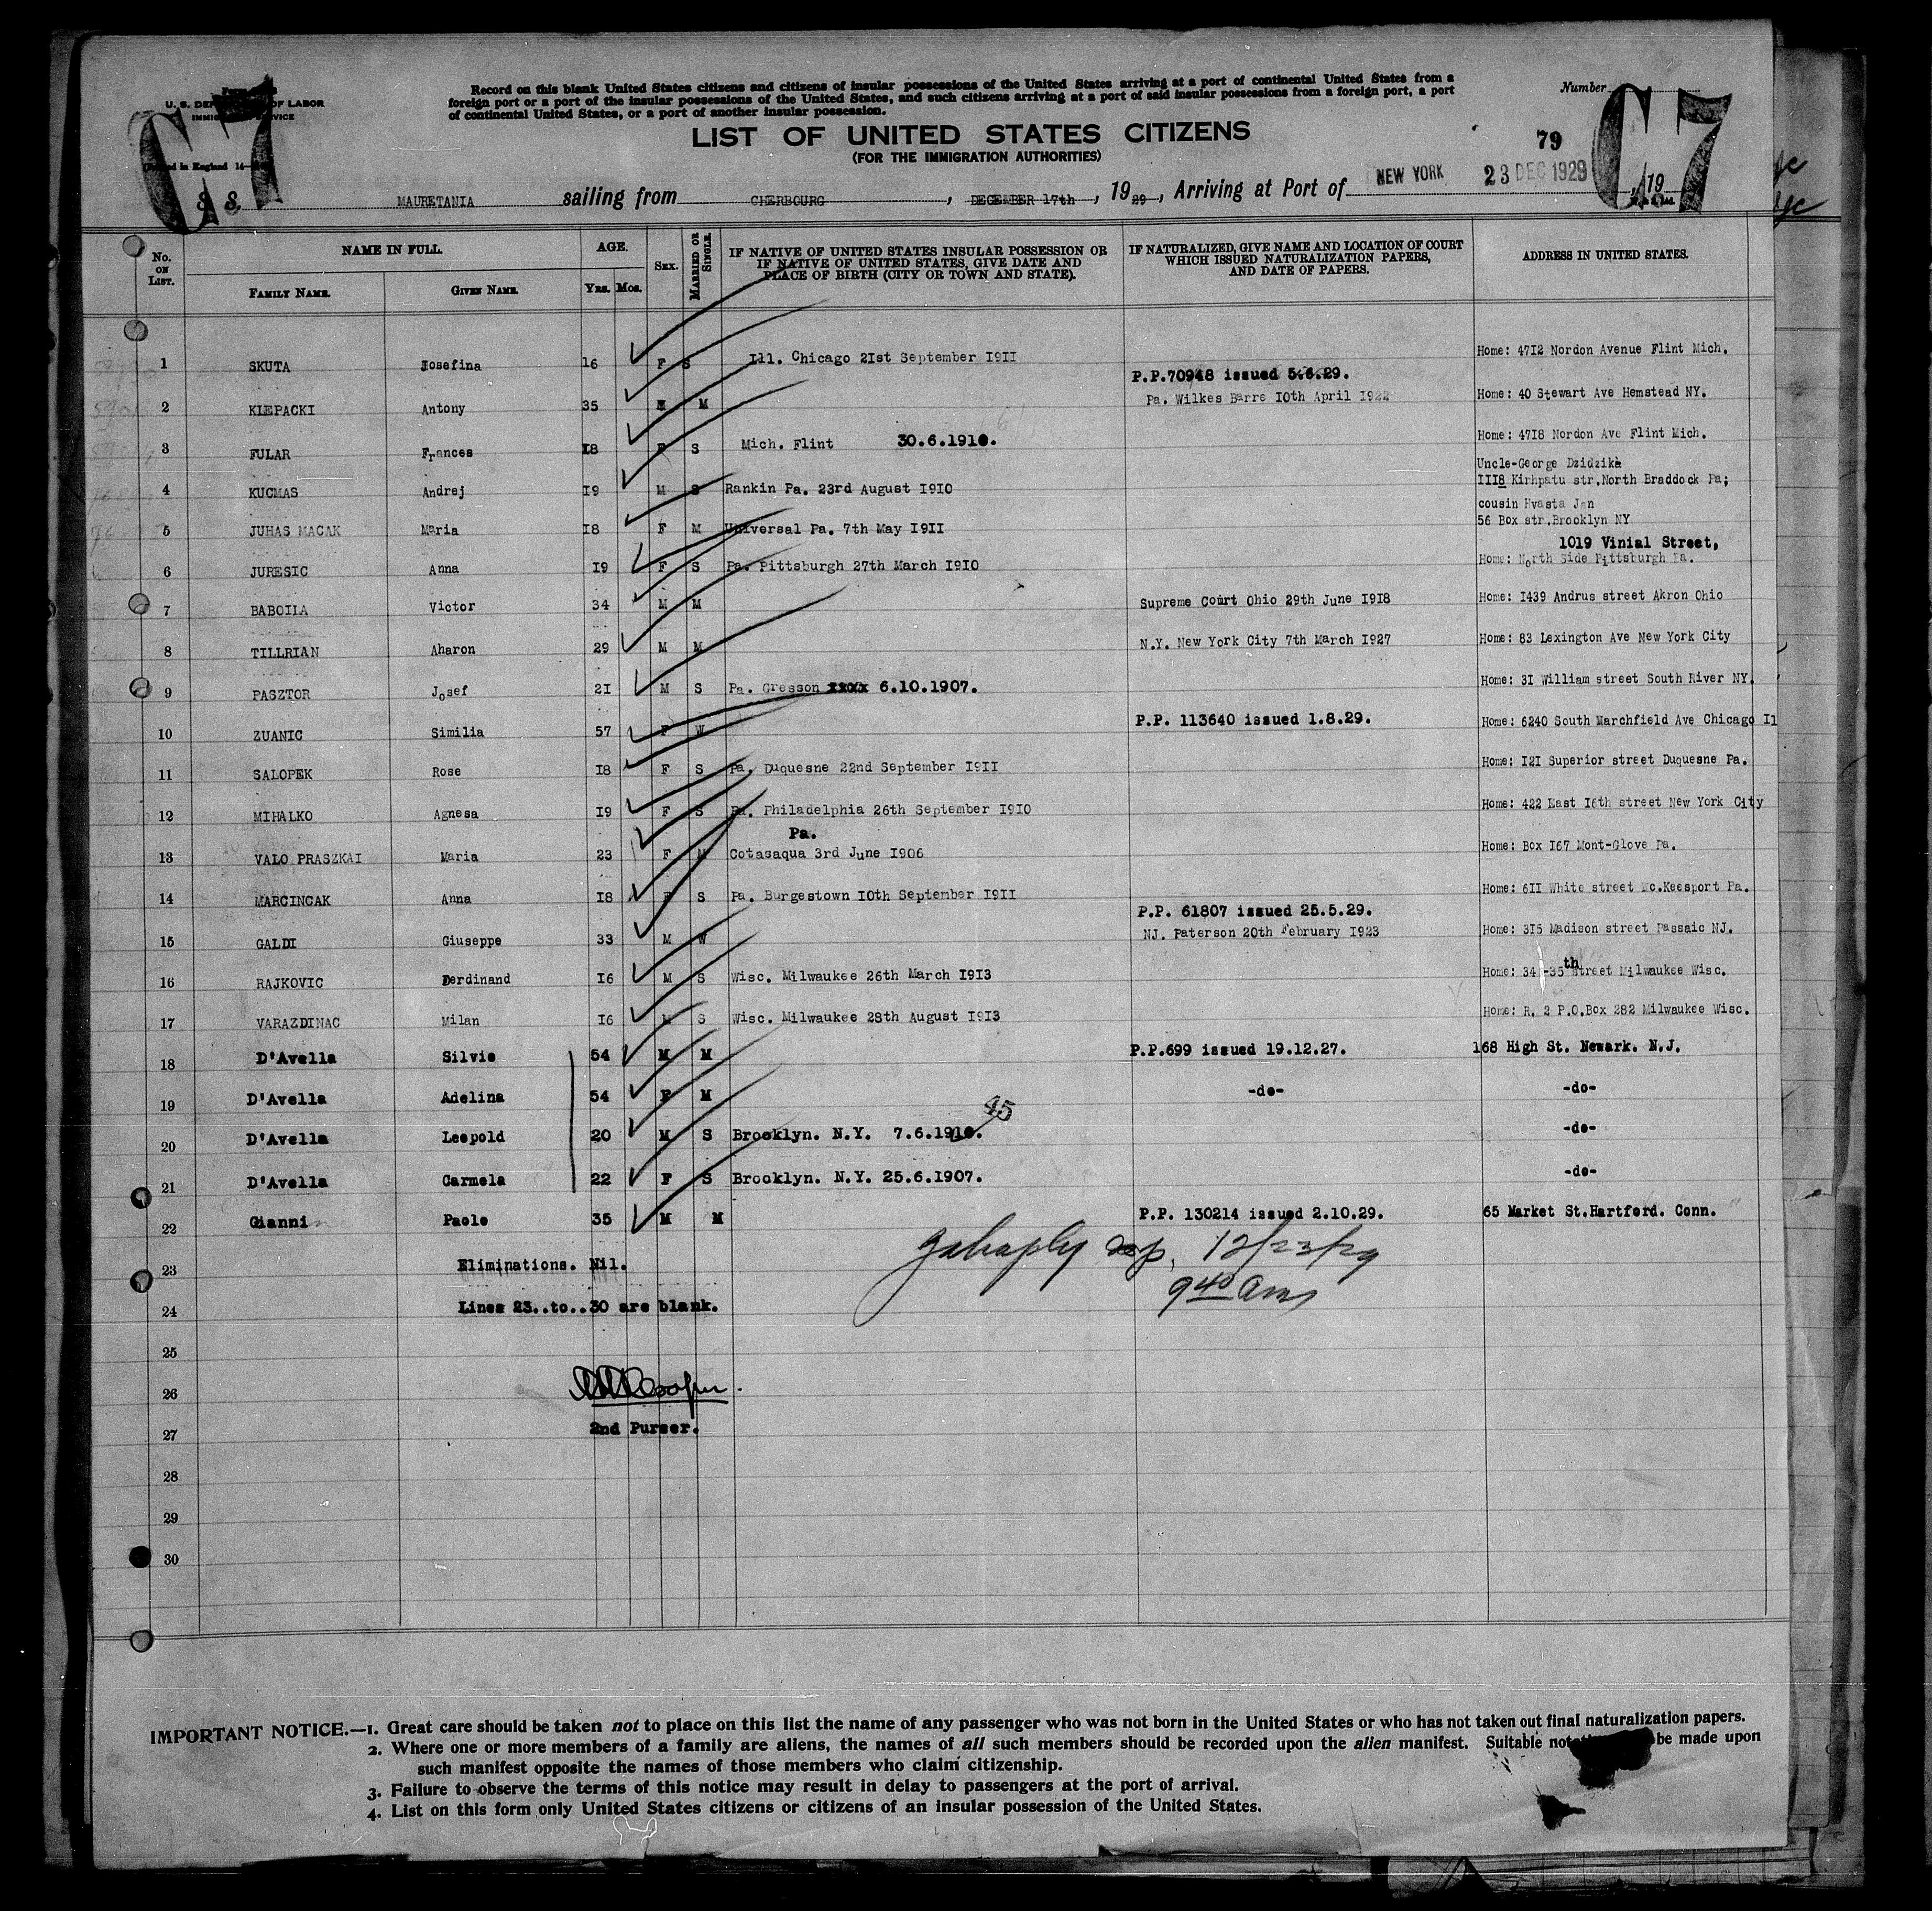 Record on this blank United States citizens and citizens of insular possessions of the United States arriving at a port of continental United States from a
foreign port or a port of the insular possessions of the United States, and such citizens arriving at a port of said insular possessions from a foreign port, a port
of continental United States, or a port of another insular possession.
U. S. OF LABOR
Number
C7
C7
LIST OF UNITED STATES CITIZENS
(FOR THE IMMIGRATION AUTHORITIES)
79
in England
SS MAURETANIA sailing from CHERBOURG, DECEMBER 17th, 1929, Arriving at Port of NEW YORK 23 DEC 1929, 19
No. ON LIST. NAME IN FULL. AGE. SEX. MARRIED OR SINGLE. IF NATIVE OF UNITED STATES INSULAR POSSESSION OR IF NATIVE OF UNITED STATES, GIVE DATE AND PLACE OF BIRTH (CITY OR TOWN AND STATE). IF NATURALIZED, GIVE NAME AND LOCATION OF COURT WHICH ISSUED NATURALIZATION PAPERS, AND DATE OF PAPERS. ADDRESS IN UNITED STATES.
FAMILY NAME. GIVEN NAME. YRS. MOS.
1 SKUTA Josefina 16 F S Ill. Chicago 21st September 1911 Home: 4712 Nordon Avenue Flint Mich.
P.P.70948 issued 5.6.29.
2 KLEPACKI Antony 35 M M Pa. Wilkes Barre 10th April 1922 Home: 40 Stewart Ave Hemstead NY.
3 FULAR Frances 18 F S Mich. Flint 30.6.1910. Home: 4718 Nordon Ave Flint Mich.
Uncle-George Dzidzika
4 KUCMAS Andrej 19 M S Rankin Pa. 23rd August 1910 1118 Kirhpatu str,North Braddock Pa;
cousin Hvasta Jan
5 JUHAS MACAK Maria 18 F M Universal Pa. 7th May 1911 56 Box str.Brooklyn NY
1019 Vinial Street,
6 JURESIC Anna 19 F S Pa. Pittsburgh 27th March 1910 Home: North Side Pittsburgh Pa.
7 BABOILA Victor 34 M M Supreme Court Ohio 29th June 1918 Home: 1439 Andrus street Akron Ohio
8 TILLRIAN Aharon 29 M M N.Y. New York City 7th March 1927 Home: 83 Lexington Ave New York City
9 PASZTOR Josef 21 M S Pa. Gresson xxxx 6.10.1907. Home: 31 William street South River NY.
10 ZUANIC Similia 57 F W P.P. 113640 issued 1.8.29. Home: 6240 South Marchfield Ave Chicago Il
11 SALOPEK Rose 18 F S Pa. Duquesne 22nd September 1911 Home: 121 Superior street Duquesne Pa.
12 MIHALKO Agnesa 19 F S Pa. Philadelphia 26th September 1910 Home: 422 East 16th street New York City
Pa.
13 VALO PRASZKAI Maria 23 F M Cotasaqua 3rd June 1906 Home: Box 167 Mont-Glove Pa.
14 MARCINCAK Anna 18 F S Pa. Burgestown 10th September 1911 Home: 611 White street Mc.Keesport Pa.
P.P. 61807 issued 25.5.29.
15 GALDI Giuseppe 33 M W NJ. Paterson 20th February 1923 Home: 315 Madison street Passaic NJ.
16 RAJKOVIC Ferdinand 16 M S Wisc. Milwaukee 26th March 1913 Home: 34 -35th street Milwaukee Wisc.
17 VARAZDINAC Milan 16 M S Wisc. Milwaukee 28th August 1913 Home: R. 2 P.O.Box 282 Milwaukee Wisc.
18 D'Avella Silvio 54 M M P.P.699 issued 19.12.27. 168 High St. Newark. N.J.
19 D'Avella Adelina 54 F M -do- -do-
20 D'Avella Leopold 20 M S Brooklyn. N.Y. 7.6.1910. -do-
21 D'Avella Carmela 22 F S Brooklyn. N.Y. 25.6.1907. -do-
22 Gianni Paolo 35 M M P.P. 130214 issued 2.10.29. 65 Market St.Hartford. Conn.
12/23/29
23 Eliminations. Nil.
9 40 am
24 Lines 23..to..30 are blank.
25
26
27 2nd Purser.
28
29
30
IMPORTANT NOTICE.—1. Great care should be taken not to place on this list the name of any passenger who was not born in the United States or who has not taken out final naturalization papers.
2. Where one or more members of a family are aliens, the names of all such members should be recorded upon the alien manifest. Suitable be made upon
such manifest opposite the names of those members who claim citizenship.
3. Failure to observe the terms of this notice may result in delay to passengers at the port of arrival.
4. List on this form only United States citizens or citizens of an insular possession of the United States.